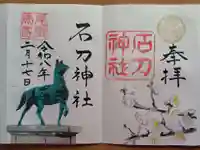 奉拝
石刀
神社
石刀神社
令和八年
二月十七日